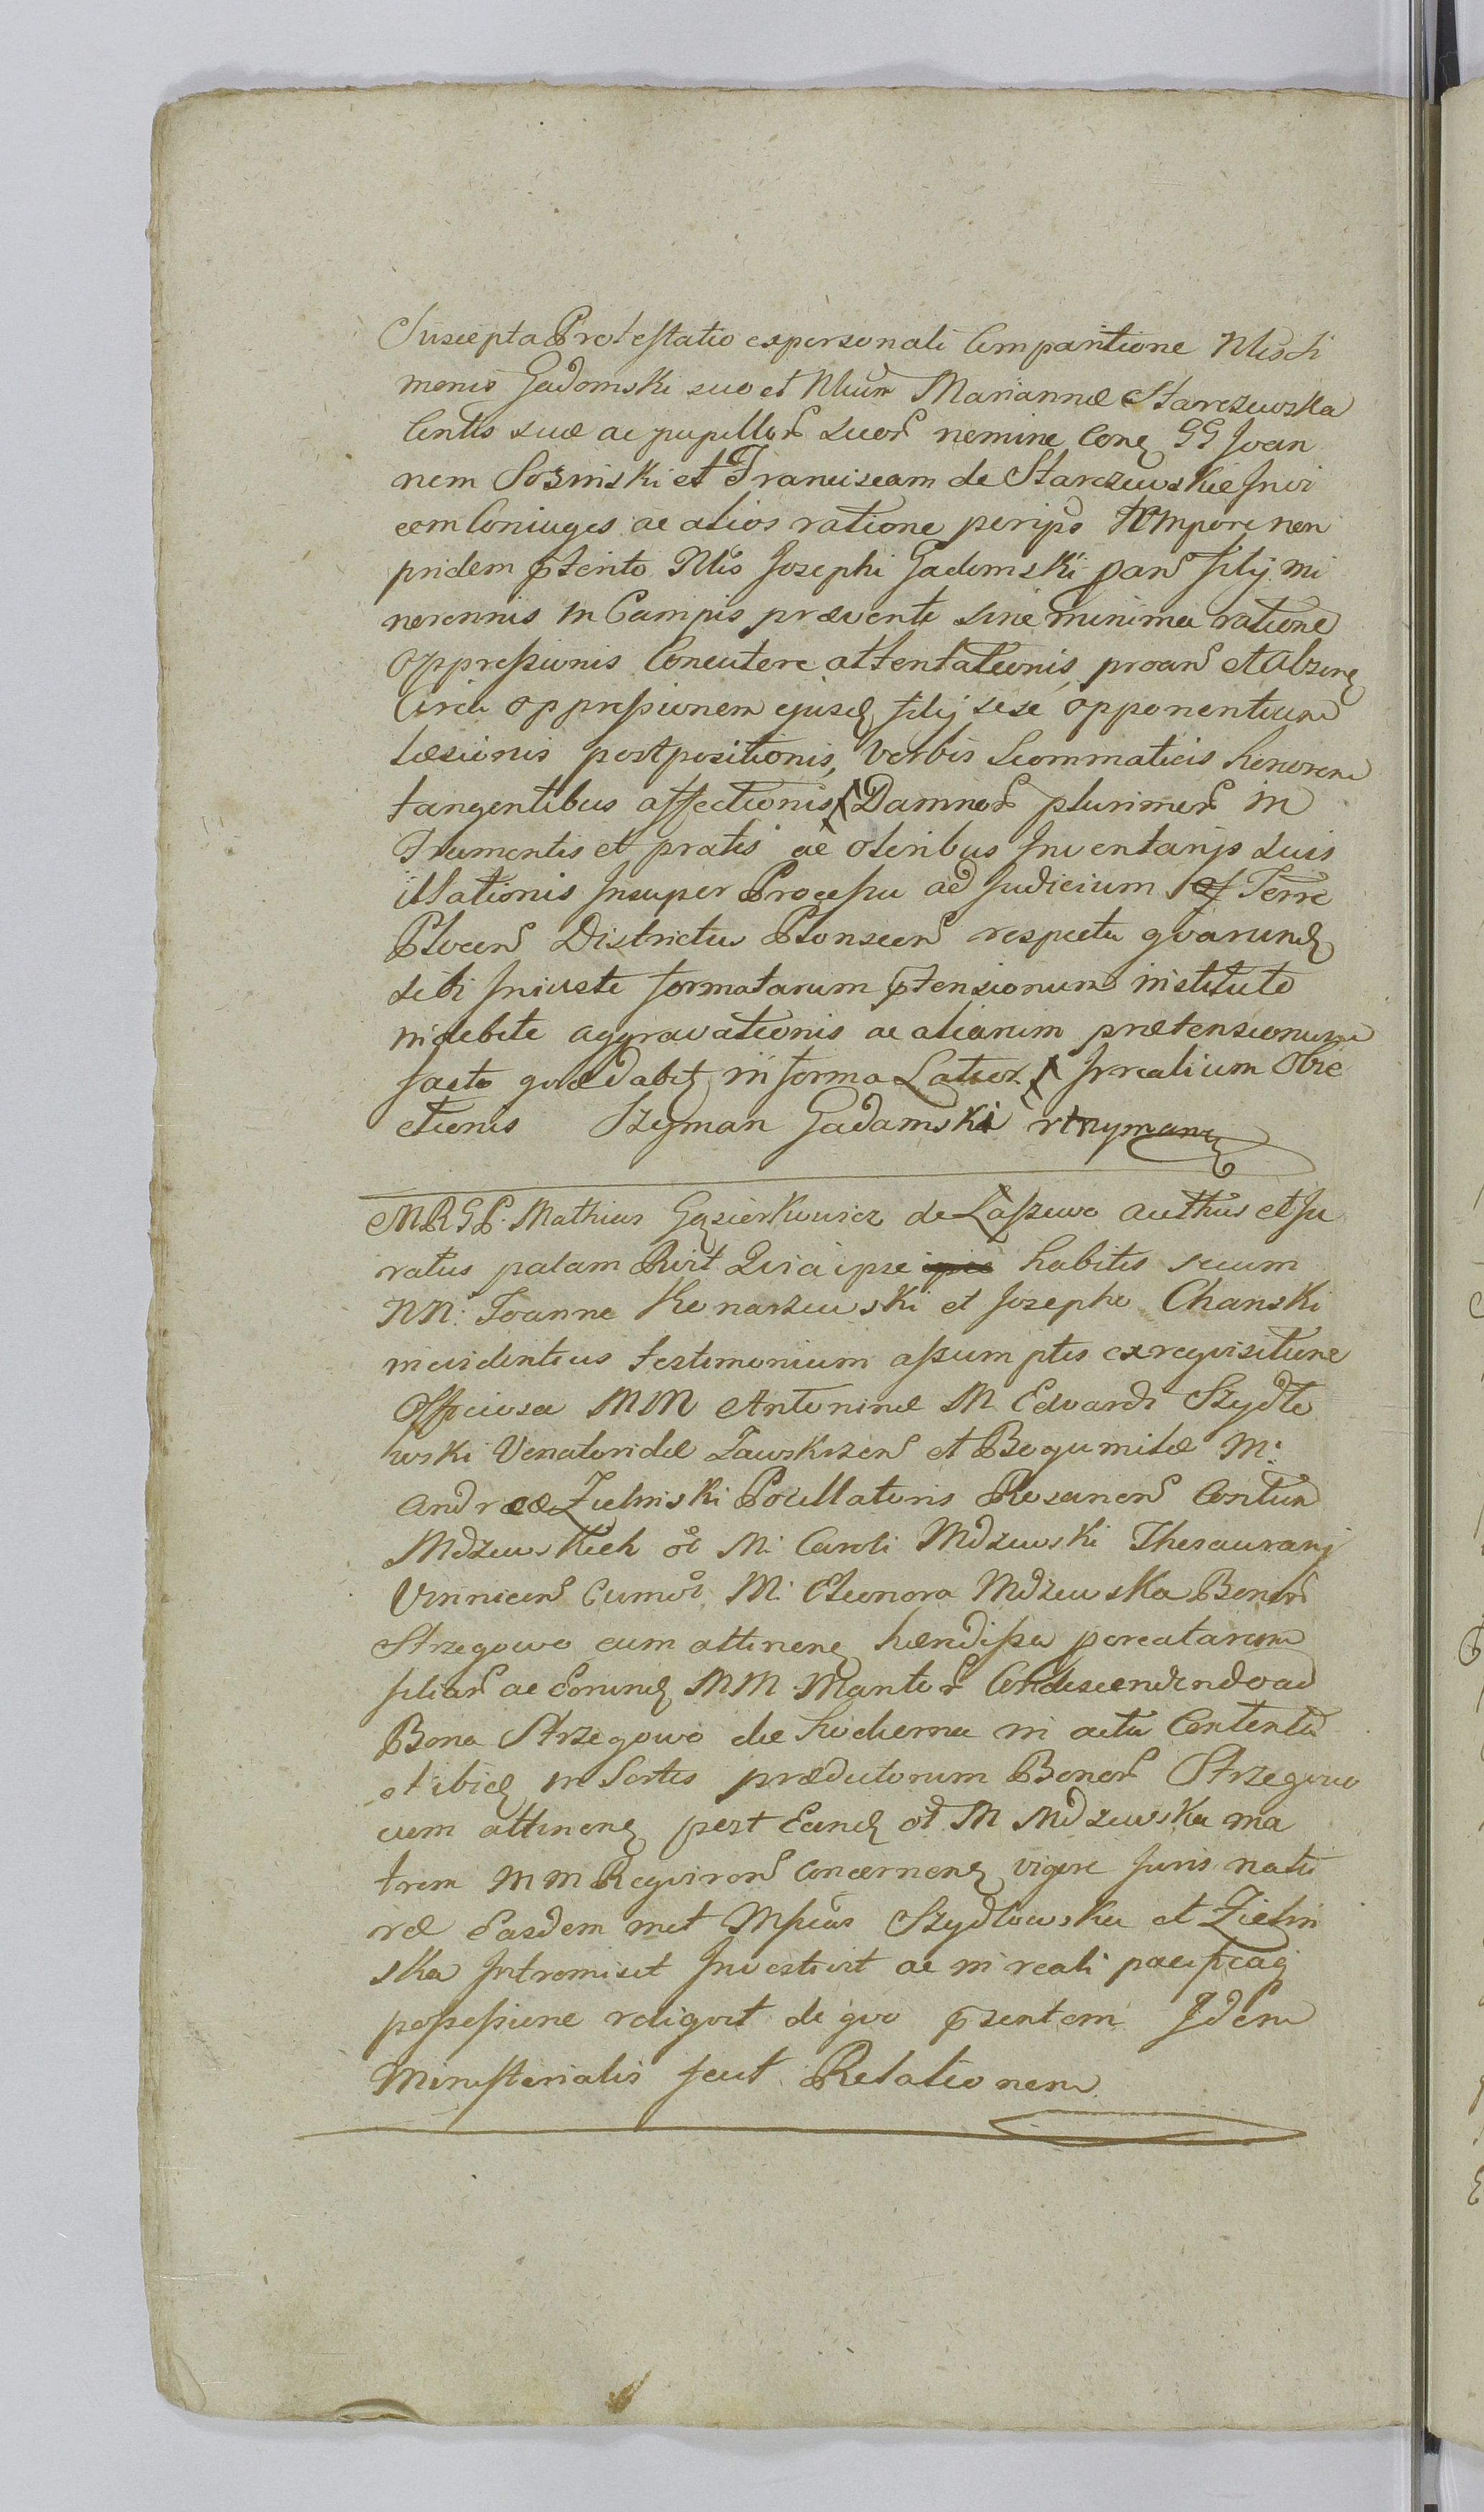 Suscepta Protestatio ex personali Comparitione Nlis Si
monis Gadomski suo et Nlium Mariannæ Starczewska
Contis suæ ac pupillor suor nomine Conq GG Joan
nem Soński et Franciscam de Starczewskie Invi
cem Coniuges ac alios ratione per ipso tempore non
pridem pterito Nlis Josephi Gadomski pan filij mi
norennis in Campis prævente sine minima ratione
oppressionis Concutere attentationis proan et Absenq
Circa oppressionem ejusd filij sese opponentium
læsionis postpositionis, verbis Scommaticis honorem
tangentibus affectionis Damnor plurimor in
Frumentis et pratis ac oteribus Inventarijs suis
illationis Insuper Processu ad Judicium Terre
Plocen Districtus Plonscen respectu qvarund
sibi Iniuste formatarum ptensionum instituto
indebite aggravationis ac aliarum prætensionum
facto qvæ dabit in forma Latior Irrealium Obie
ctionis Szyman Gadamski
MRGP. Mathias Gąsiorkiewicz de Łaszewo authus et Ju
ratus palam Rvit Qvia ipse habitis secum
NN. Joanne Konarzewski et Josepho Chamski
in evidentius testimonium assumptis ex reqvisitione
Officiosa MM Antoninæ M Edvardi Szydło
wski Venatoridæ Zawskrzen et Bogumilæ M:
Andreæ Zielinski Pocillatoris Rosanen Contum
Mdzewskich ol M: Caroli Mdzewski Thesaurarij
Vinnicen Cum ol M: Eleonora Mdzewska Bonor
Strzegowo cum attinenq hærdissa procreatarum
filiar ac Eorund MM Maritor Condescendendo ad
Bona Strzegowo die hodierna in actu Contenta
et ibid in Sortes prædictorum Bonor Strzegowo
cum attinenq post Eand ol M Mdzewska ma
trem MM Reqviren concernenq vigore Juris natu
ræ Easdem met Mficas Szydłowska et Zielin
ska Intromisit Investivit ac in reali pacificaq
possessione reliqvit de qvo psentem Idem
Ministerialis fecit Relationem